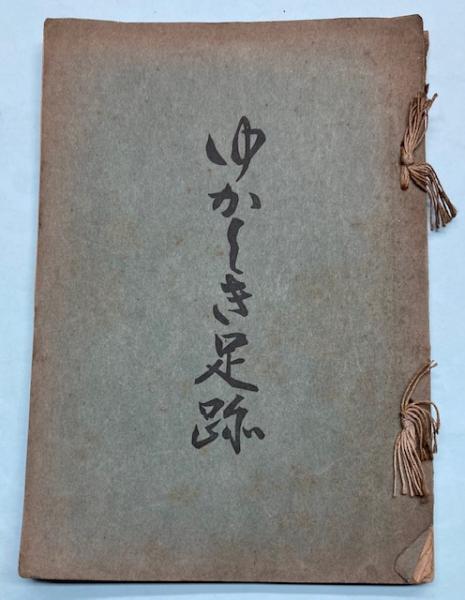 ゆかしき足跡